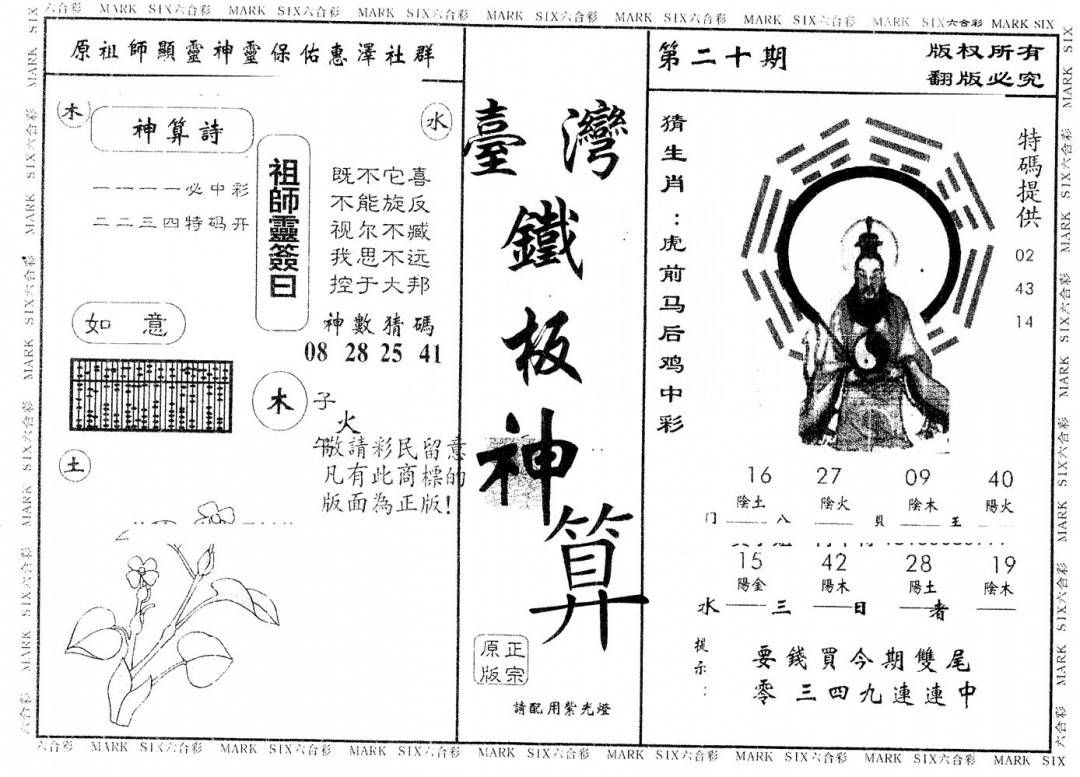 六合彩 MARK SIX六合彩 MARK SIX六合彩 MARK SIX六合彩 MARK SIX六合彩 MARK SIX六合彩 MARK SIX六合彩 MARK SIX六合彩 MARK SIX
原祖師顯靈神靈保佑惠澤社群
木
神算詩
水
一一一一必中彩
二二三四特码开
祖師靈簽曰
既不它喜
不能旋反
视尔不臧
我思不远
控于大邦
如意
神數猜碼
08 28 25 41
木
子
火
午
敬請彩民留意
凡有此商標的
版面為正版!
土
臺灣
鐵
板
神
算
原正
版宗
請配用紫光燈
第二十期
版权所有
翻版必究
猜生肖:虎前马后鸡中彩
特碼提供
02
43
14
16 27 09 40
陰土 陰火 陰木 陽火
门 八 貝 王
15 42 28 19
陽金 陽木 陽土 陰木
水 三 日 者
提示:
要錢買今期雙尾
零三四九連連中
六合彩 MARK SIX六合彩 MARK SIX六合彩 MARK SIX六合彩 MARK SIX六合彩 MARK SIX六合彩 MARK SIX六合彩 MARK SIX六合彩 MARK SIX